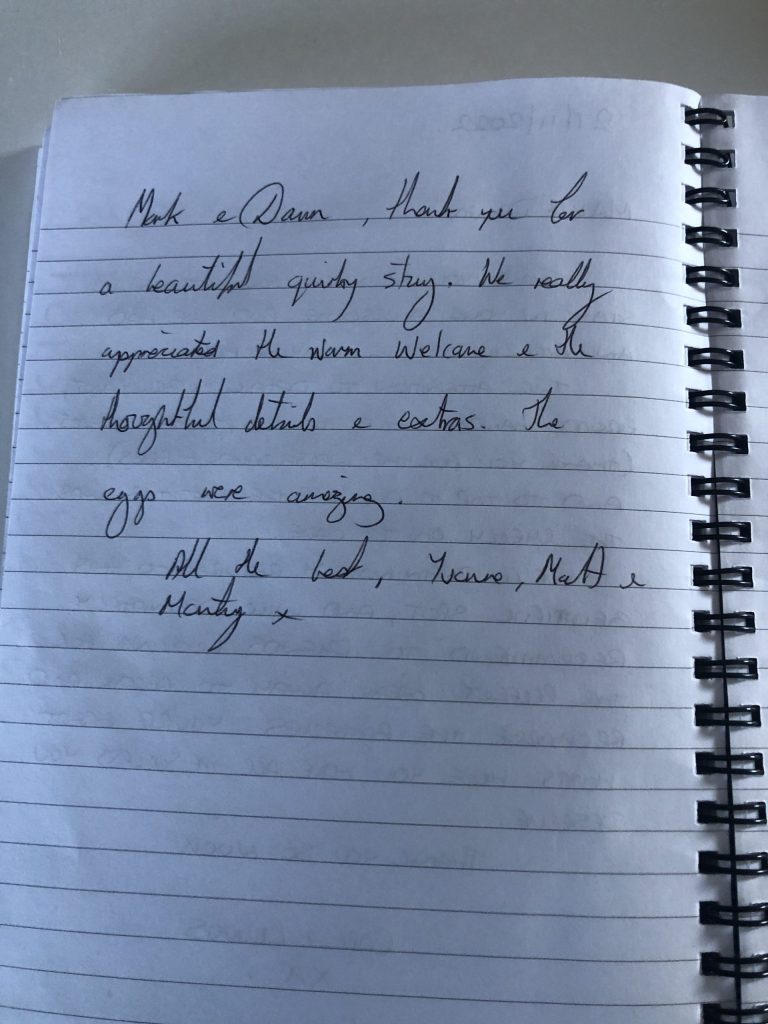 Mark e Dawn, thank you for
a beautiful quirky stay. We really
appreciated the warm welcome e the
thoughtful details e extras. The
eggs were amazing.
All the best, Yvonne, Matt e
Monty x